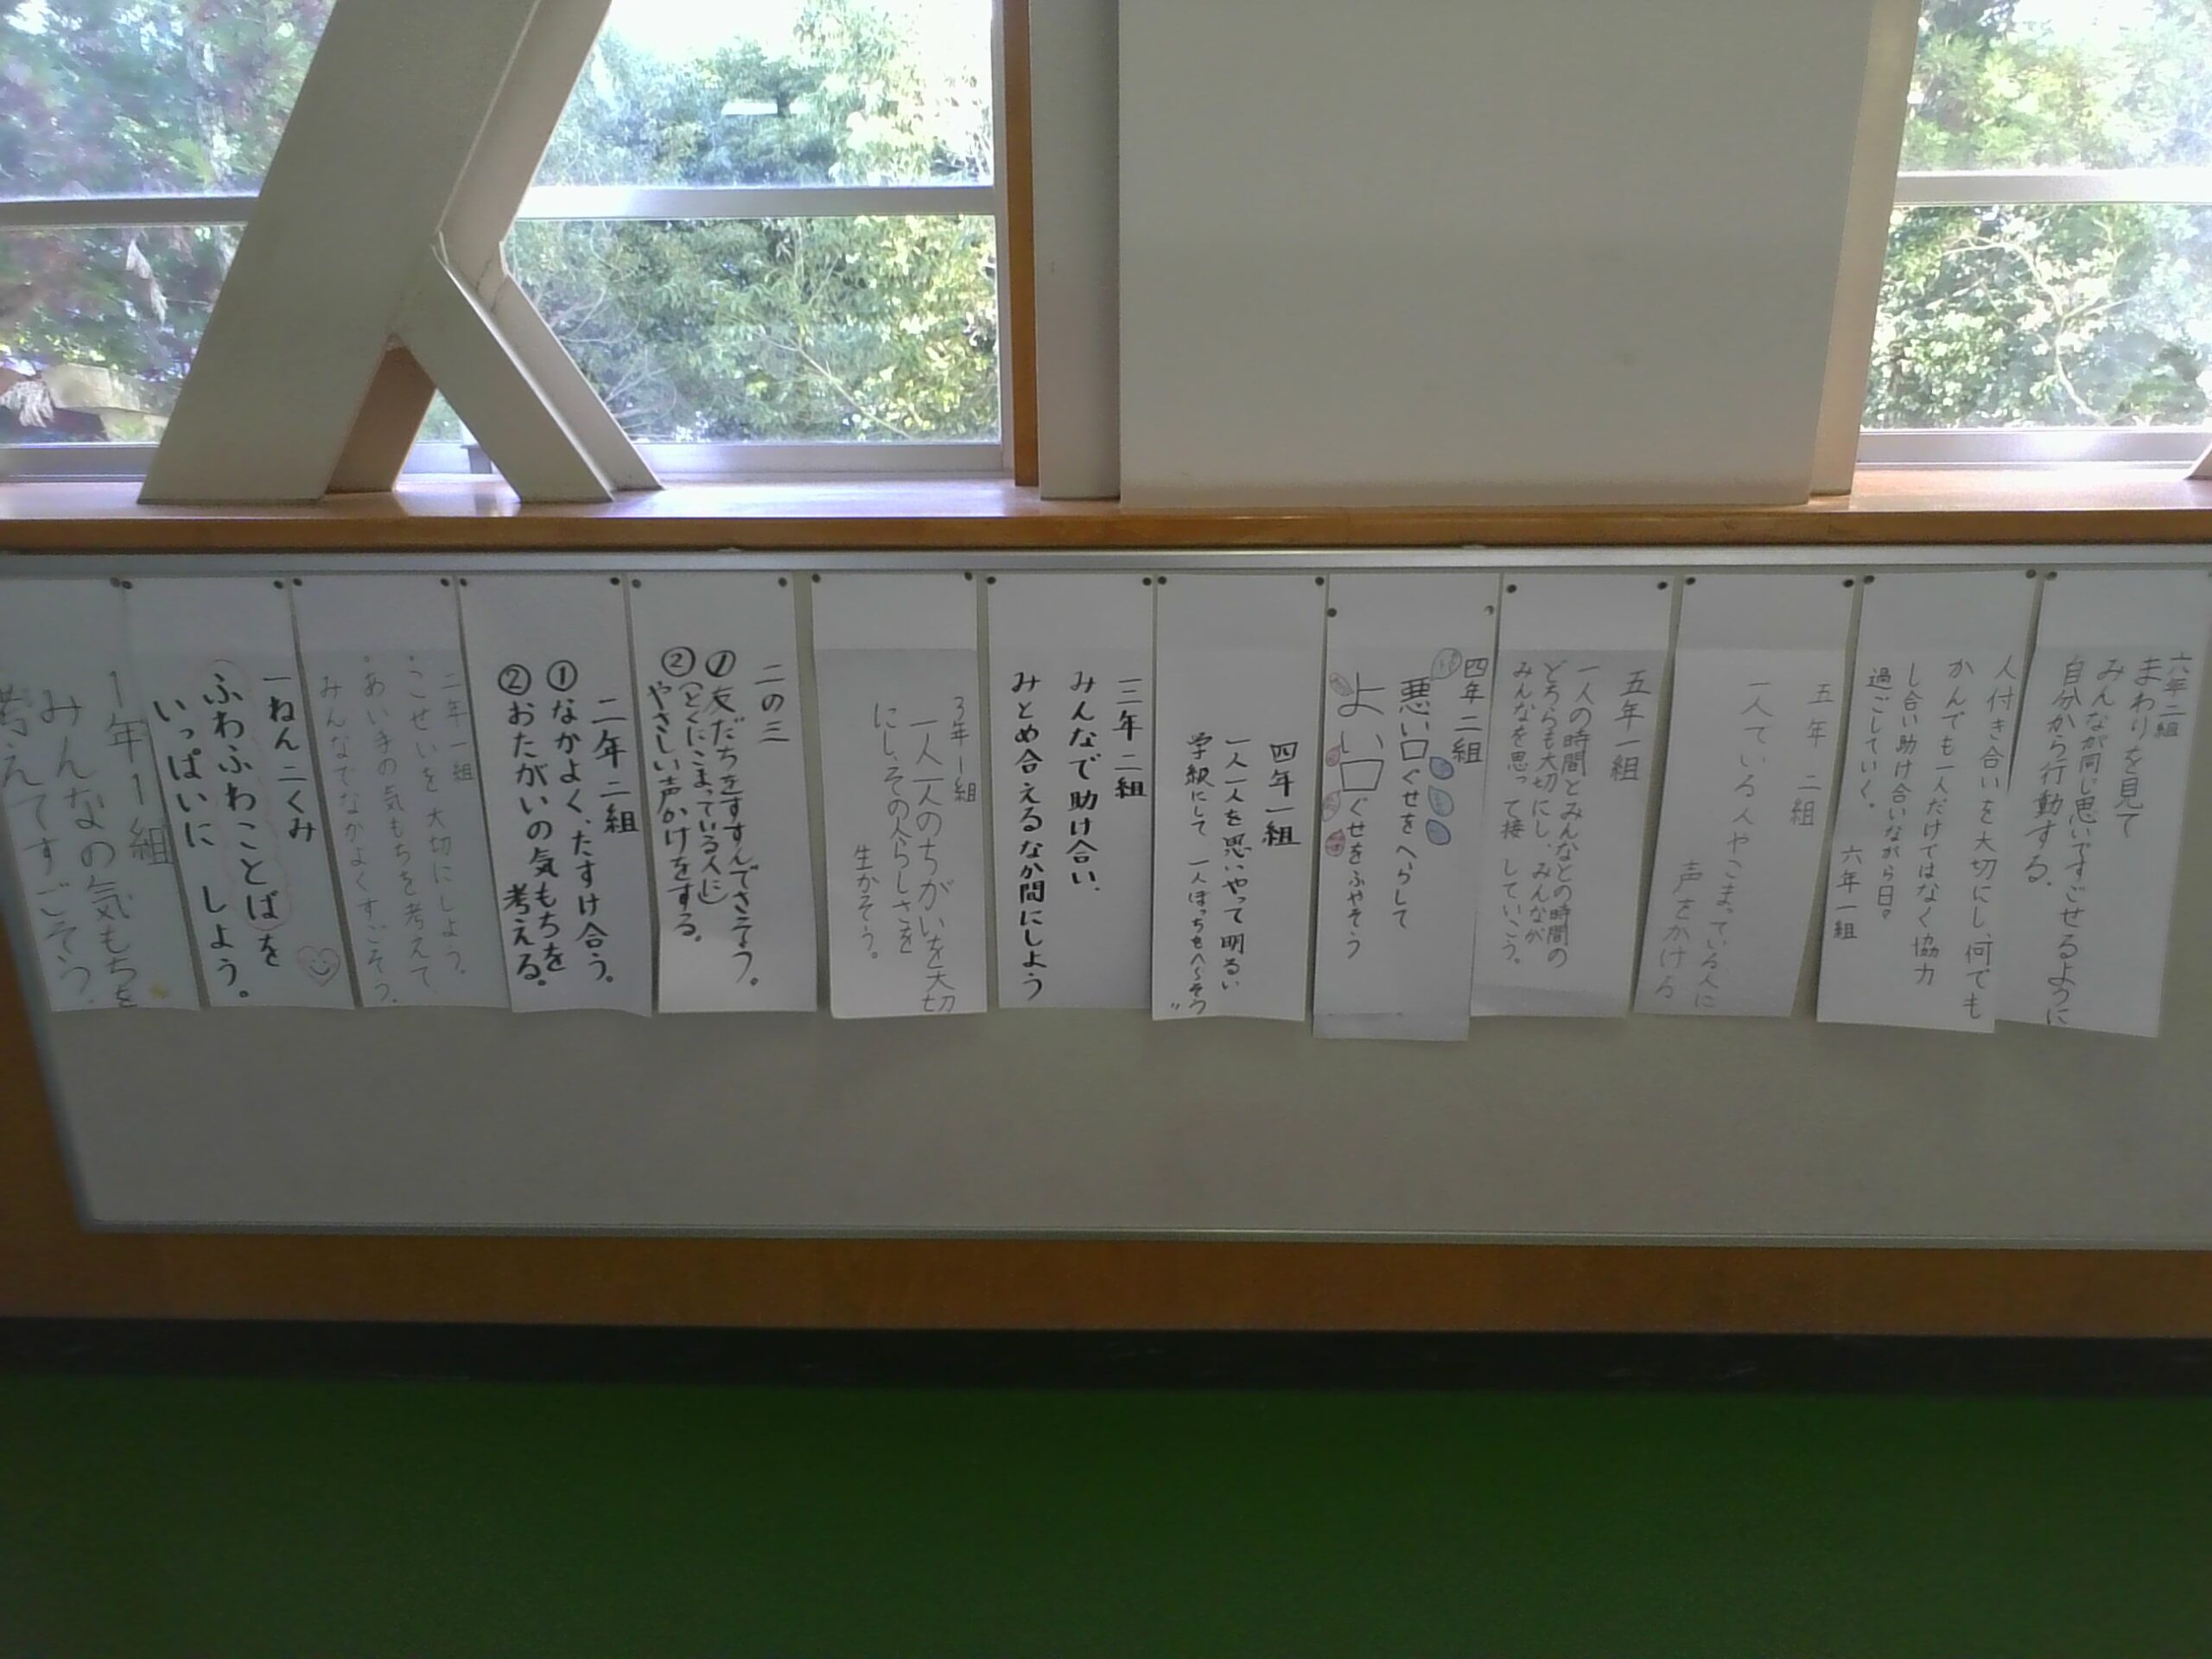 六年二組
まわりを見て
みんなが同じ思いですごせるように
自分から行動する。
人付き合いを大切にし、何でも
かんでも一人だけではなく協力
し合い助け合いながら日々
過ごしていく。
六年一組
五年 二組
一人でいる人やこまっている人に
声をかける
五年一組
一人の時間とみんなとの時間の
どちらも大切にし、みんなが
みんなを思って接していこう。
四年二組
悪い口ぐせをへらして
よい口ぐせをふやそう
四年一組
一人一人を思いやって明るい
学級にして 一人ぼっちをへらそう
三年二組
みんなで助け合い、
みとめ合えるなか間にしよう
3年1組
一人一人のちがいを大切
にし、その人らしさを
生かそう。
二の三
①友だちをすすんでさそう。
②(とくにこまっている人に)
やさしい声かけをする。
二年二組
①なかよく、たすけ合う。
②おたがいの気もちを
考える。
二年一組
・こせいを大切にしよう。
・あい手の気もちを考えて
みんなでなかよくすごそう。
一ねん二くみ
ふわふわことばを
いっぱいに しよう。
1年1組
みんなの気もちを
考えてすごそう。